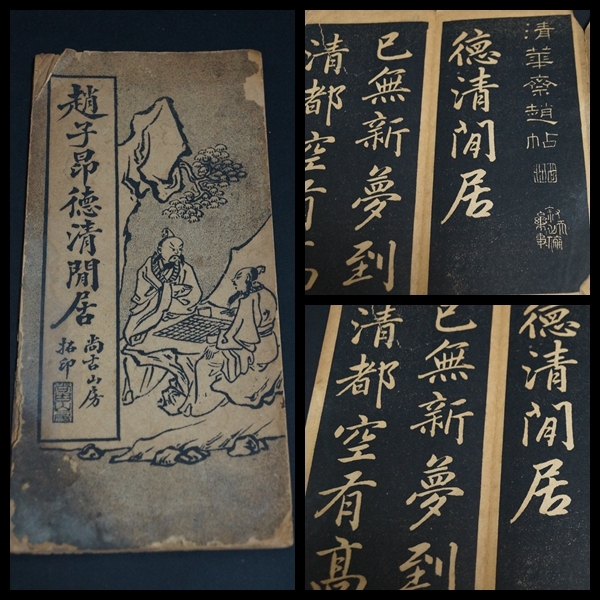 趙子昂德清閒居
尚古山房
拓印
清華齋趙帖
德清閒居
已無新夢到
清都空有高
德清閒居
已無新夢到
清都空有高